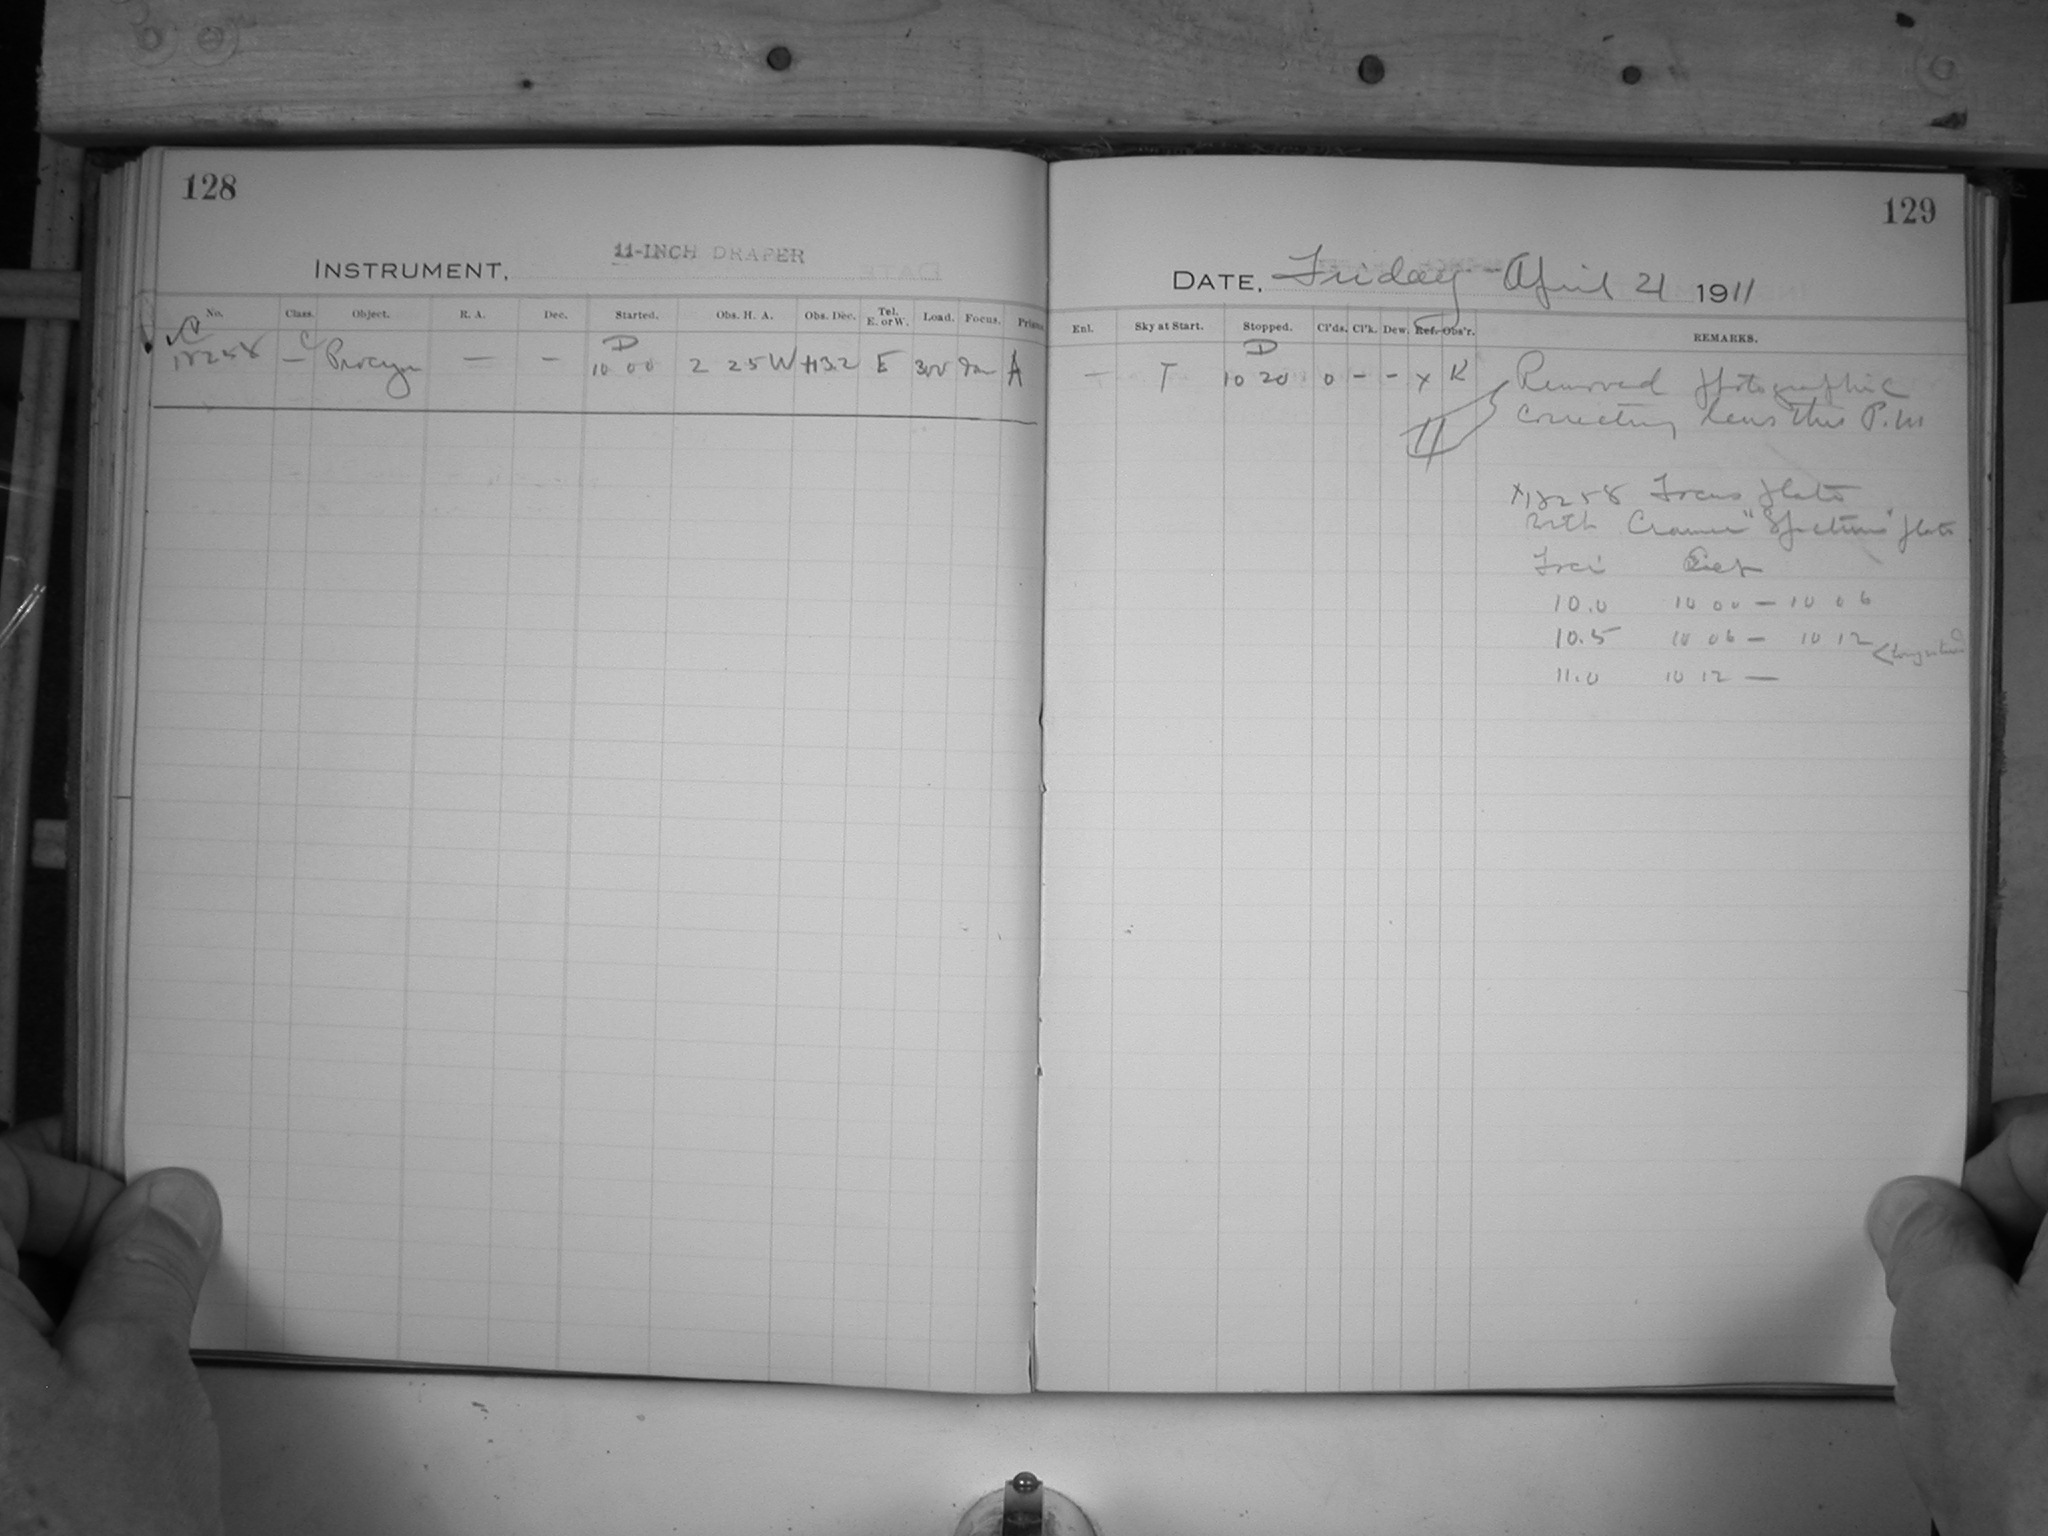 128
INSTRUMENT, 11-INCH DRAPER
No. Class. Object. R. A. Dec. Started. Obs. H. A. Obs. Dec. Tel. E. or W. Load. Focus. Prism
C C D
18258 — Procyon — — 10 00 2 25 W +13.2 E 300 A
129
DATE, Friday - April 21 1911
Enl. Sky at Start. Stopped. Cl'ds. Cl'k. Dew. Ref. Obs'r. REMARKS.
D
— T 10 20 0 - - x K Removed photographic
correcting lens this P.M
x18258 Focus plate
with Cramer "Spectrum" plate
Foci
10.0 10 00 — 10 06
10.5 10 06 — 10 12
11.0 10 12 —